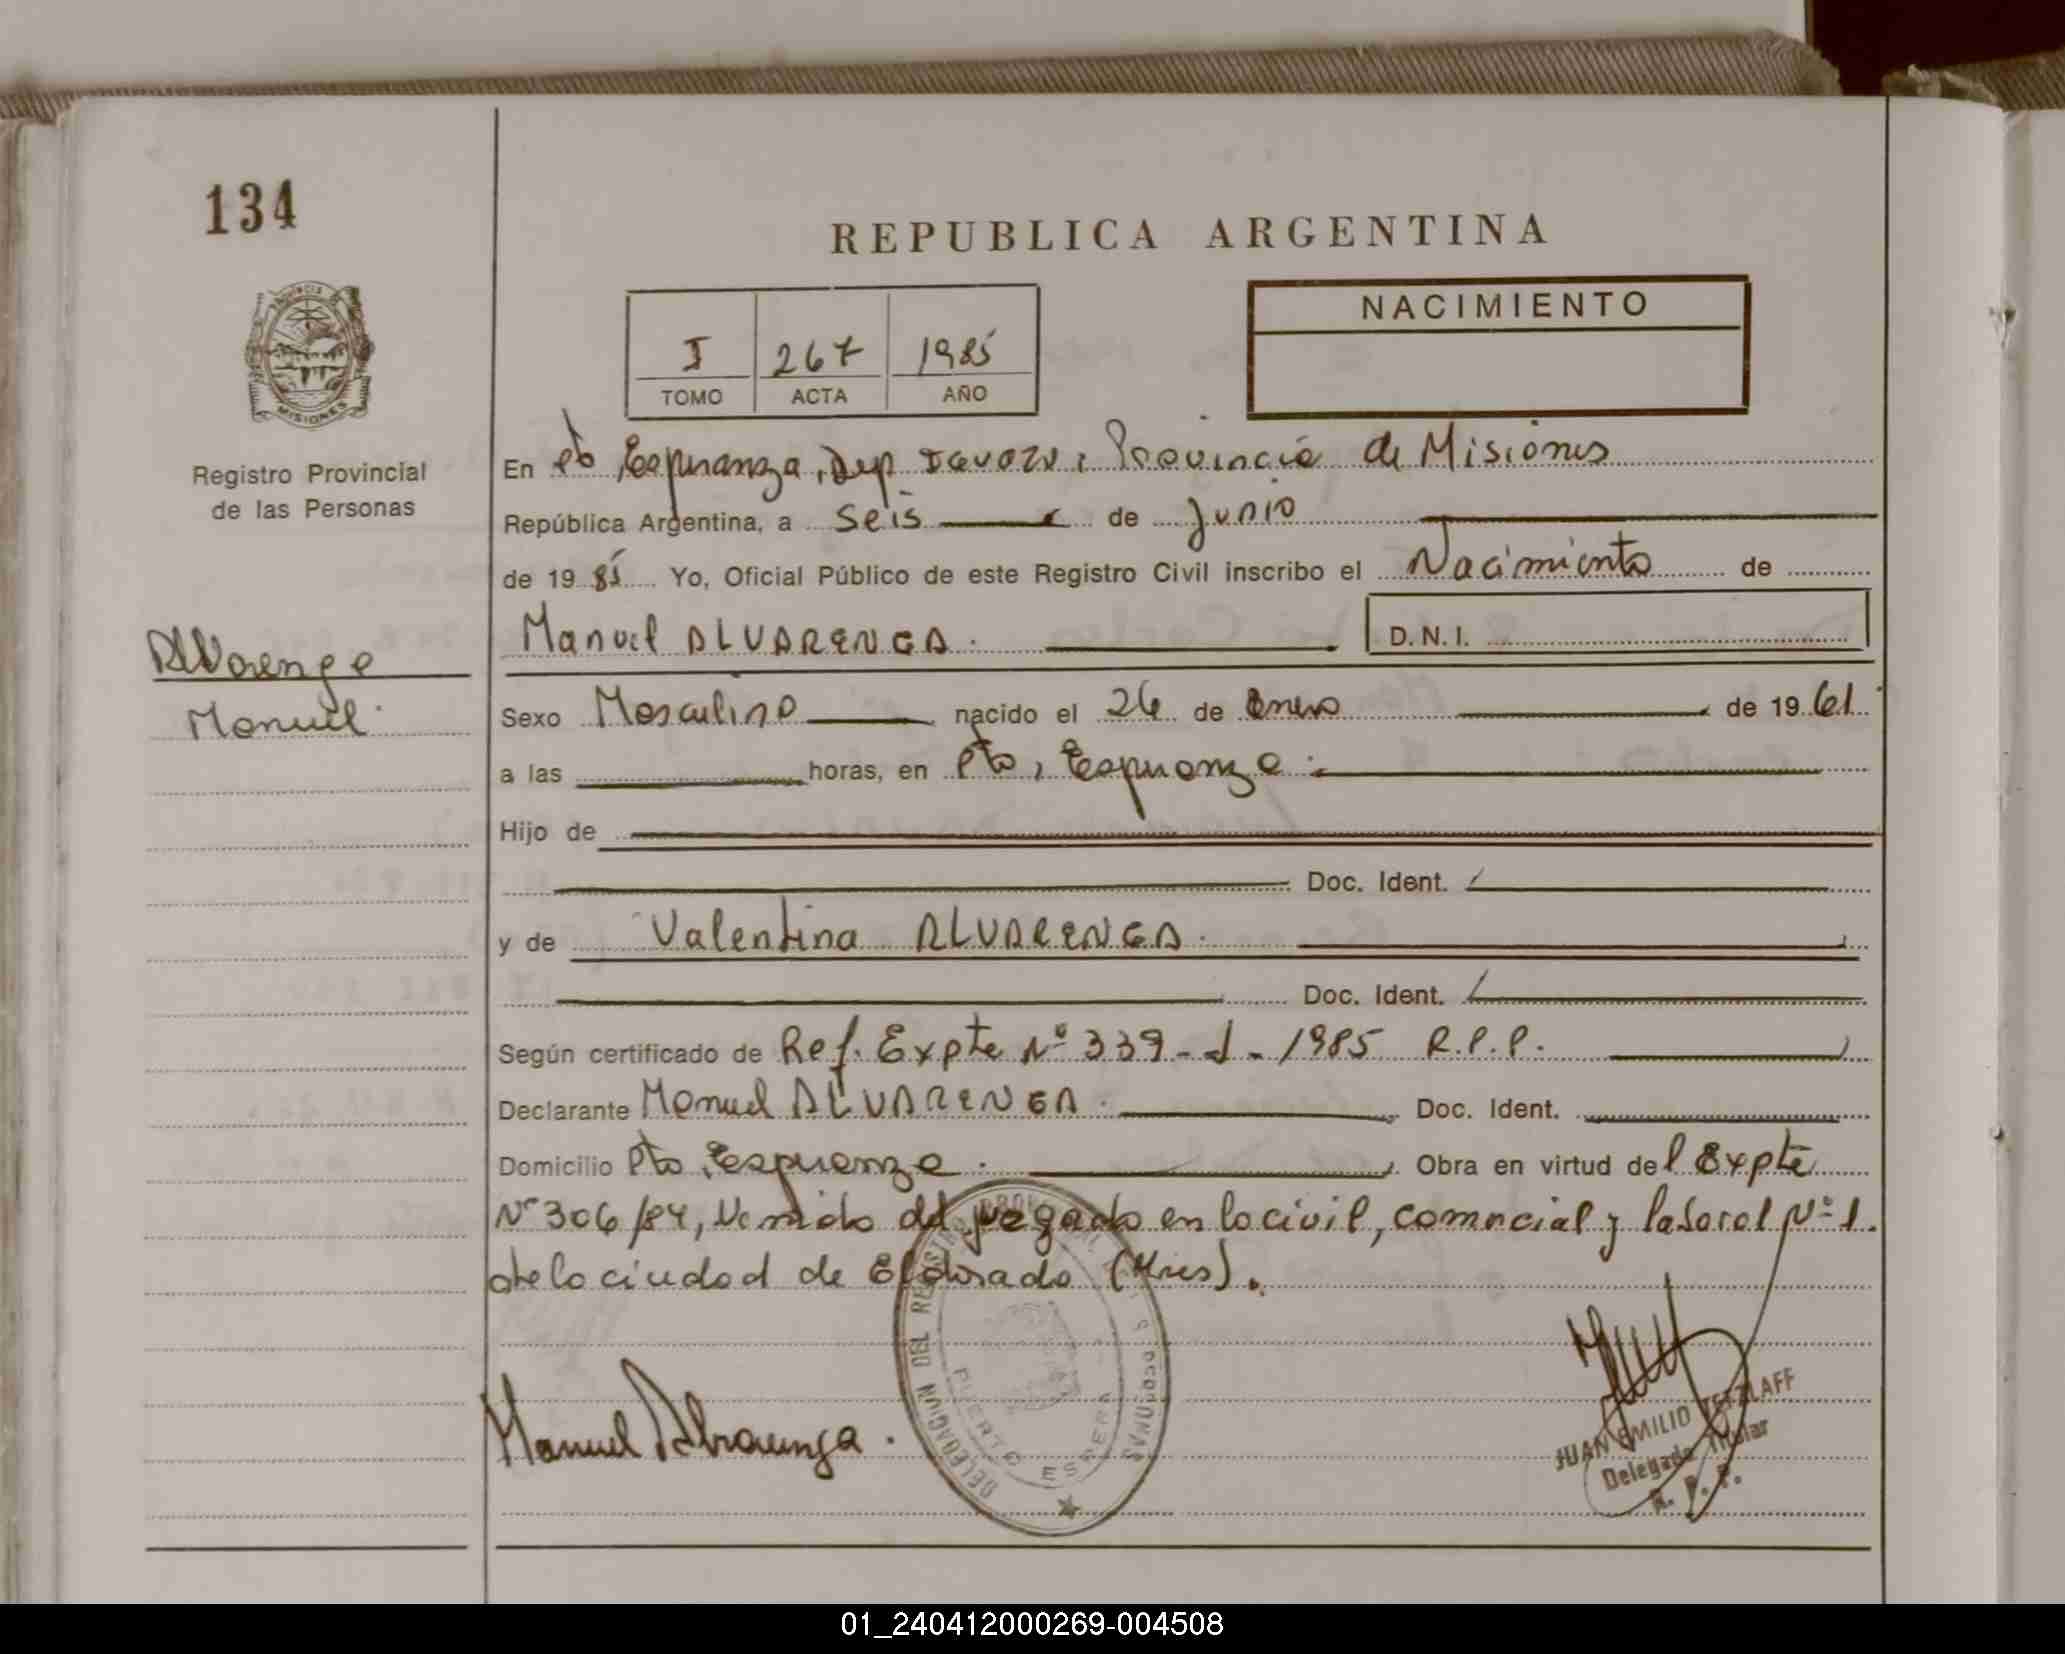 134
REPUBLICA ARGENTINA
NACIMIENTO
I 267 1985
TOMO ACTA AÑO
Registro Provincial
de las Personas
En Pto Esperanza, Dep Iguazu, Provincia de Misiones
República Argentina, a seis de Junio
de 1985 Yo, Oficial Público de este Registro Civil inscribo el Nacimiento de
Manuel ALVARENGA. D.N.I.
Alvarenga
Manuel
Sexo Masculino nacido el 26 de Enero de 1961
a las horas, en Pto, Esperanza
Hijo de
Doc. Ident.
y de Valentina ALVARENGA.
Doc. Ident.
Según certificado de Ref. Expte Nº 339-1-1985 R.P.P.
Declarante Manuel ALVARENGA. Doc. Ident.
Domicilio Pto, Esperanza. Obra en virtud del Expte
Nº 306/84, Venido del juzgado en lo civil, comercial y laboral Nº 1.
de la ciudad de Eldorado (Mnes).
DELEGACION DEL REGISTRO PROVINCIAL
PUERTO ESPERA
Manuel Alvarenga.
JUAN EMILIO TETZLAFF
Delegado Titular
R. P. P.
01_240412000269-004508